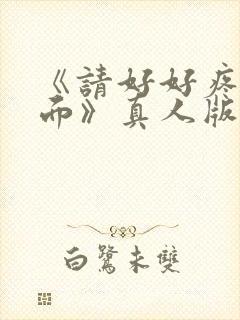 《請好好疼
而》真人版
白鷺未雙